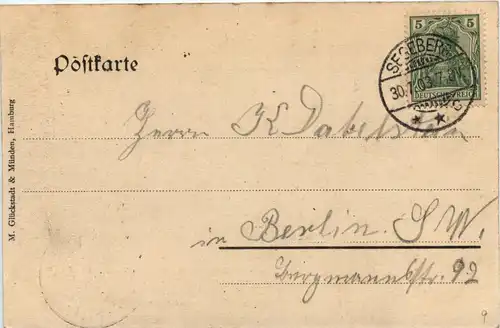 5 5
DEUTSCHES REICH
SEGEBERG
30.7.03. 7-8V.
Postkarte
Herrn K Dabelstein
in Berlin. S.W.
Bergmannstr. 92
M. Glückstadt & Münden, Hamburg
9